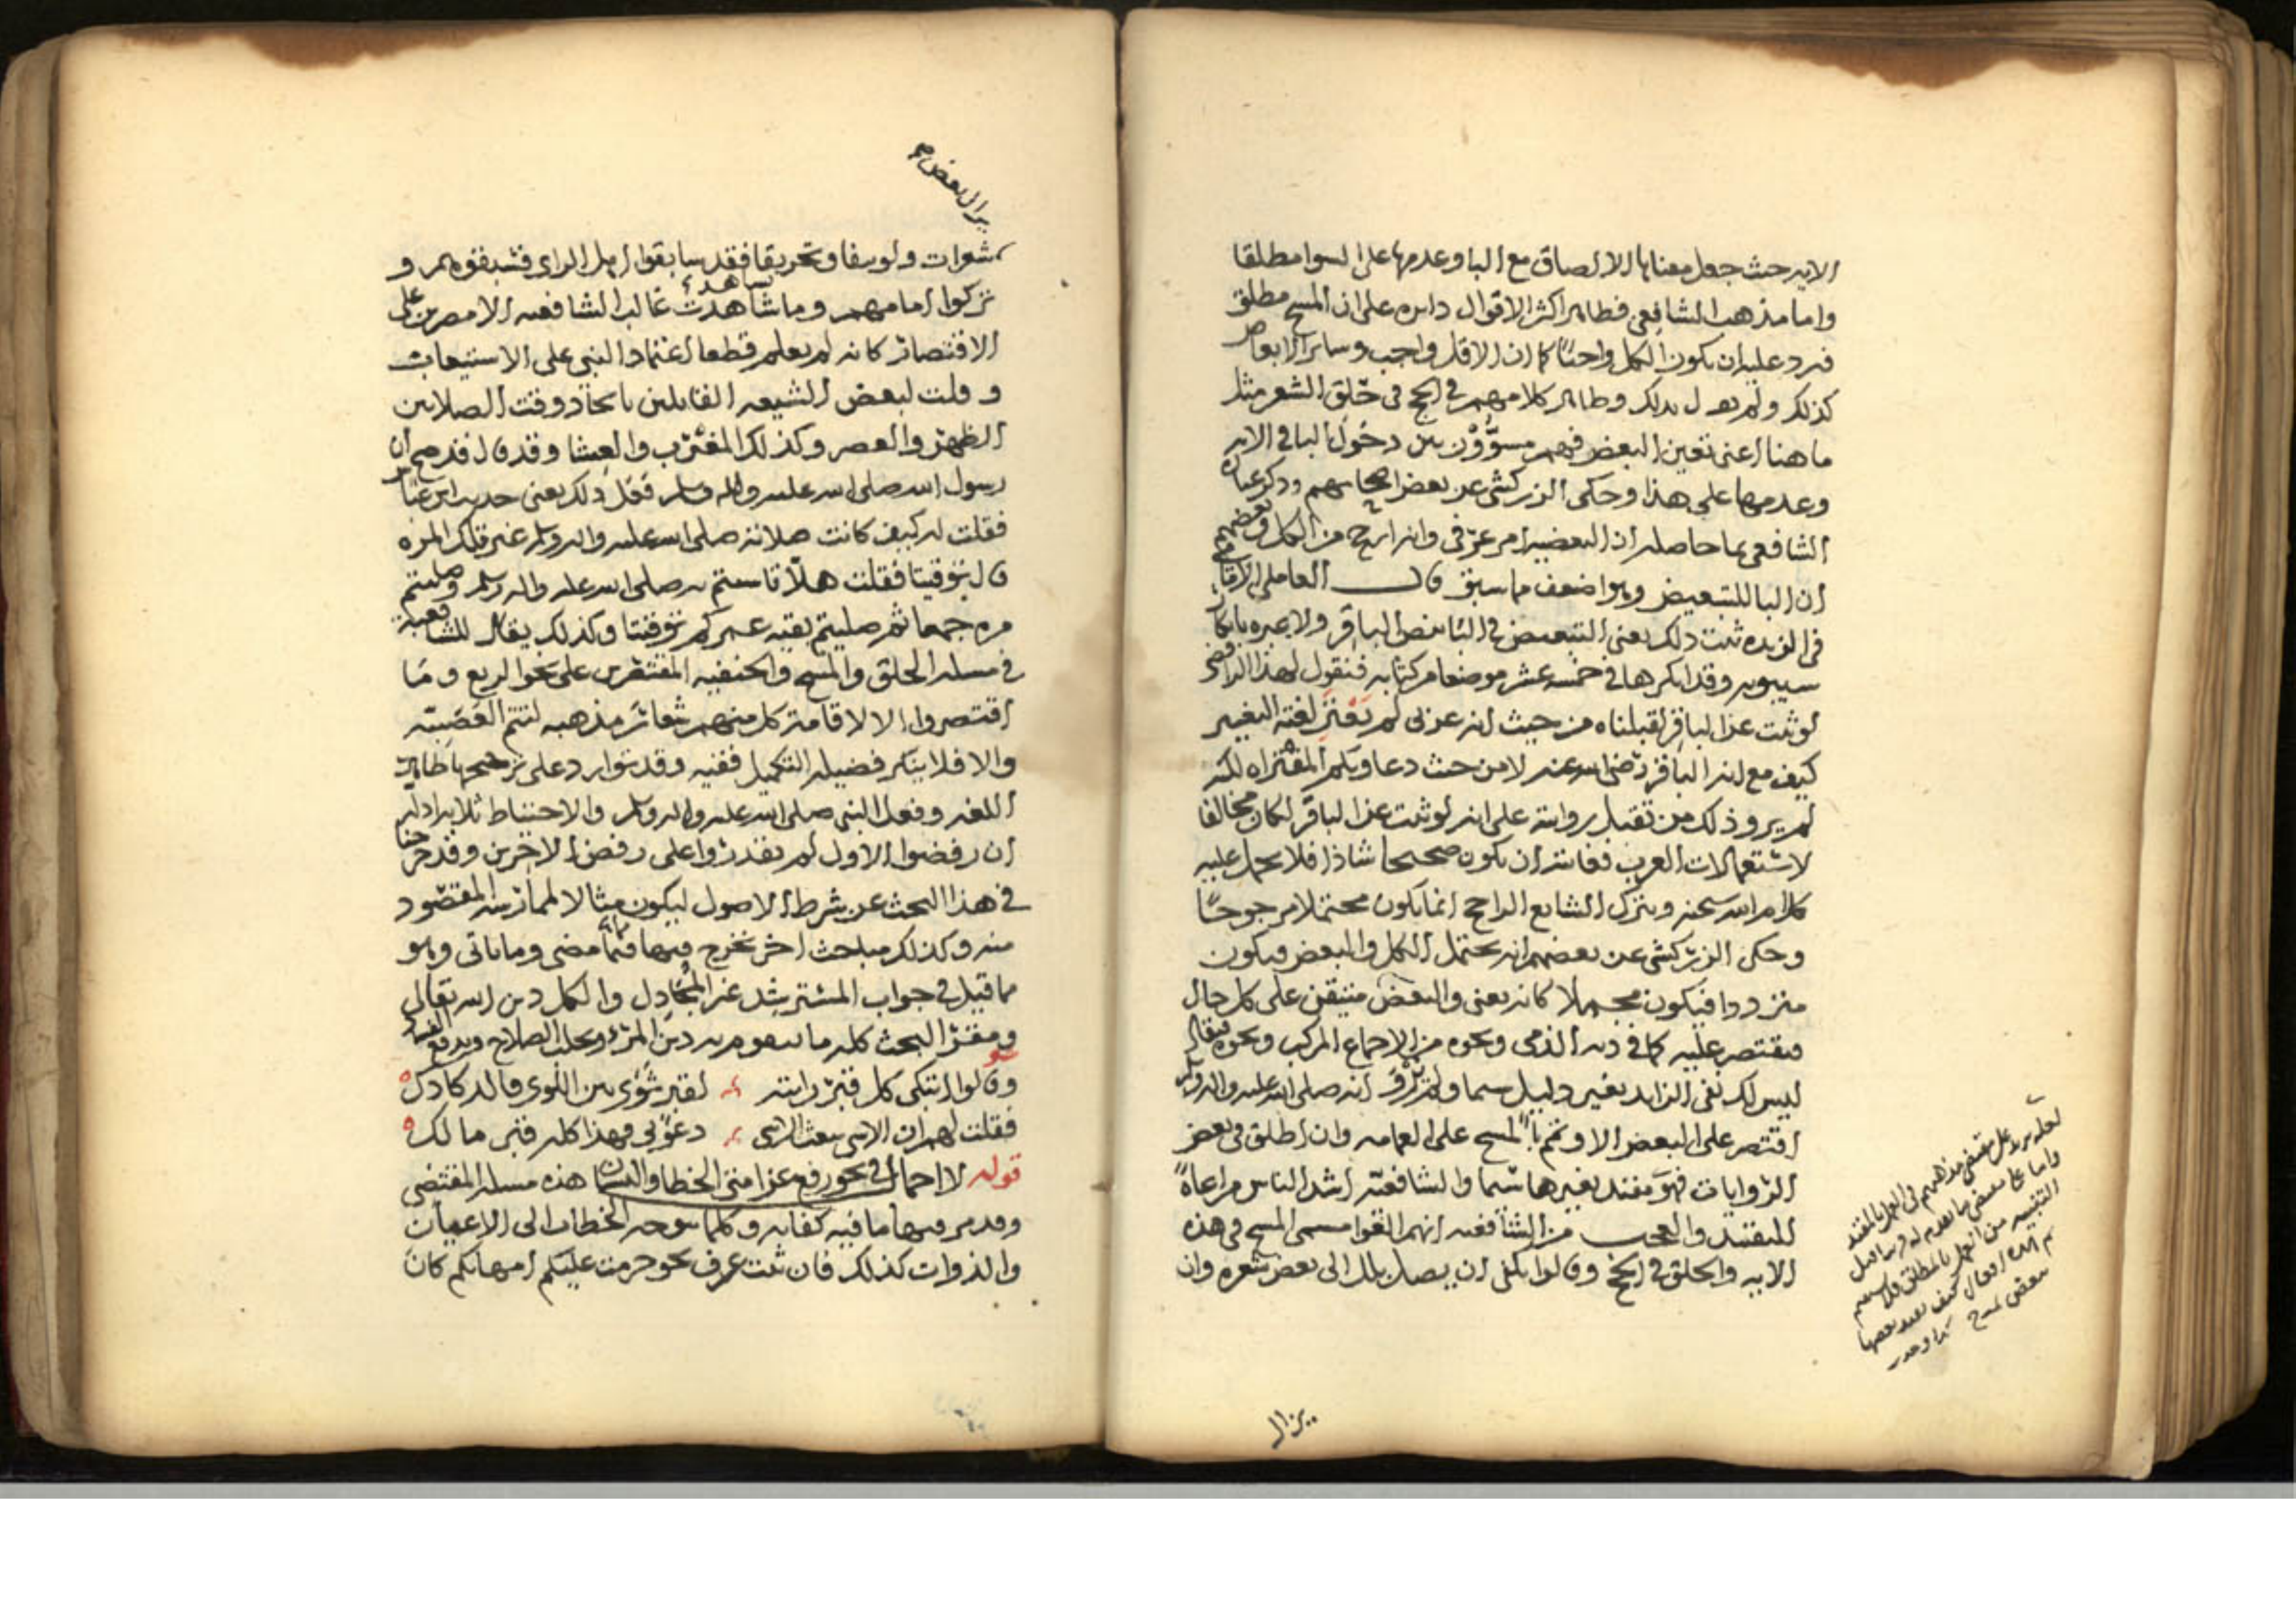 الايه حيث جعل معناها الالصاق مع البا وعدمها على السوا مطلقا
واما مذهب الشافعي فظاهر اكثر الاقوال دايره على ان المسح مطلق
فيرد عليه ان يكون الكل واجبا كما ان الاقل واجب وساير الابعاض
كذلك ولم يقل بذلك وظاهر كلامهم في الحج في حلق الشعر مثل
ما هنا اعني تعين البعض فهم مسوون بين دخول البا في الايه
وعدمها على هذا وحكى الزركشي عن بعض اصحابهم وذكر عباره
الشافعي بما حاصله ان البعضيه امر عرفي وانه ارجح من الكل وبعضهم
ان البا للتبعيض وهو اضعف مما سبق قال العاملي
في الزبده ثبت ذلك يعني التبعيض في البا بنص الباقر ولا عبره بانكار
سيبويه وقد انكرها في خمسه عشر موضعا من كتابه فنقول لهذا الرافضي
لو ثبت عن الباقر لقبلناه من حيث انه عربي لم يعتر لغته التغيير
كيف مع انه الباقر رضي الله عنه لا من حيث دعاويكم المفتراه لكنه
لم يرو ذلك من تقبل روايته على انه لو ثبت عن الباقر لكان مخالفا
لاستعمالات العرب فغايته ان يكون صحيحا شاذا فلا يحمل عليه
كلام الله سبحنه ويترك الشايع الراجح انما يكون محتملا مرجوحا
وحكى الزركشي عن بعضهم انه يحتمل الكل والبعض فيكون
مترددا فيكون مجملا كانه يعني والبعض متيقن على كل حال
فيقتصر عليه كما في ديه الذمي ونحوه من الاجماع المركب ونحوه فيقال
ليس لك نفي الزايد بغير دليل سيما ولم يرو انه صلى الله عليه واله وسلم
اقتصر على البعض الا وتمم بالمسح على العمامه وان اطلق في بعض
الروايات فهو مقيد بغيرها سيما والشافعيه اشد الناس مراعاة
للتقييد والعجب من الشافعيه انهم القوا مسمى المسح في هذه
الايه والحلق في الحج وقالوا يكفي ان يصل بلل الى بعض شعره وان
يزال
يزال بعض
شعرات ولو نتفا وتحريقا فقد سابقوا اهل الراي فسبقوهم و
تركوا امامهم وما شاهدت غالب الشافعيه الا مصرين على
الاقتصار كانه لم يعلم قطعا اعتماد النبي على الاستيعاب
و قلت لبعض الشيعه القايلين باتحاد وقت الصلاتين
الظهر والعصر وكذلك المغرب والعشا وقد قال قد صح ان
رسول الله صلى الله عليه واله وسلم فعل ذلك يعني حديث ابن عباس
فقلت له كيف كانت صلاته صلى الله عليه واله وسلم غير تلك المره
قال توقيتا فقلت هلا تاسيتم به صلى الله عليه واله وسلم وصليتم
مره جمعا ثم صليتم بقيه عمركم توقيتا وكذلك يقال للشافعيه
في مسله الحلق والمسح والحنفيه المقتصرين على نحو الربع وما
اقتصروا الا لاقامة كل منهم شعائر مذهبه لتتم العصبيه
والا فلا ينكر فضيله التكميل فقيه وقد توارد على ترجيحها ظاهر
اللغه وفعل النبي صلى الله عليه واله وسلم والاحتياط ثلاثه ادله
ان رفضوا الاول لم يقدروا على رفض الاخرين وقد خرجنا
في هذا البحث عن شرط الاصول ليكون مثالا لممارسه المقصود
منه وكذلك مباحث اخر نخرج فيها فيما مضى وما ياتي وهو
مما قيل في جواب المسترشد غير المجادل والكل دين الله تعالى
ومغزى البحث كله ما يقوم به دين المرء ويجلب الصلاح ويدفع الفساد
وقالوا اتبكي كل قبر رايته لقبر ثوى بين اللوى فالدكادك
فقلت لهم ان الاسى يبعث الاسى دعوني فهذا كله قبر مالك
قوله لا اجمال في نحو رفع عن امتي الخطا والنسيان هذه مسله المقتضي
وقد مر فيها ما فيه كفايه وكلما توجه الخطاب الى الاعيان
والذوات كذلك فان ثبت عرف نحو حرمت عليكم امهاتكم كان